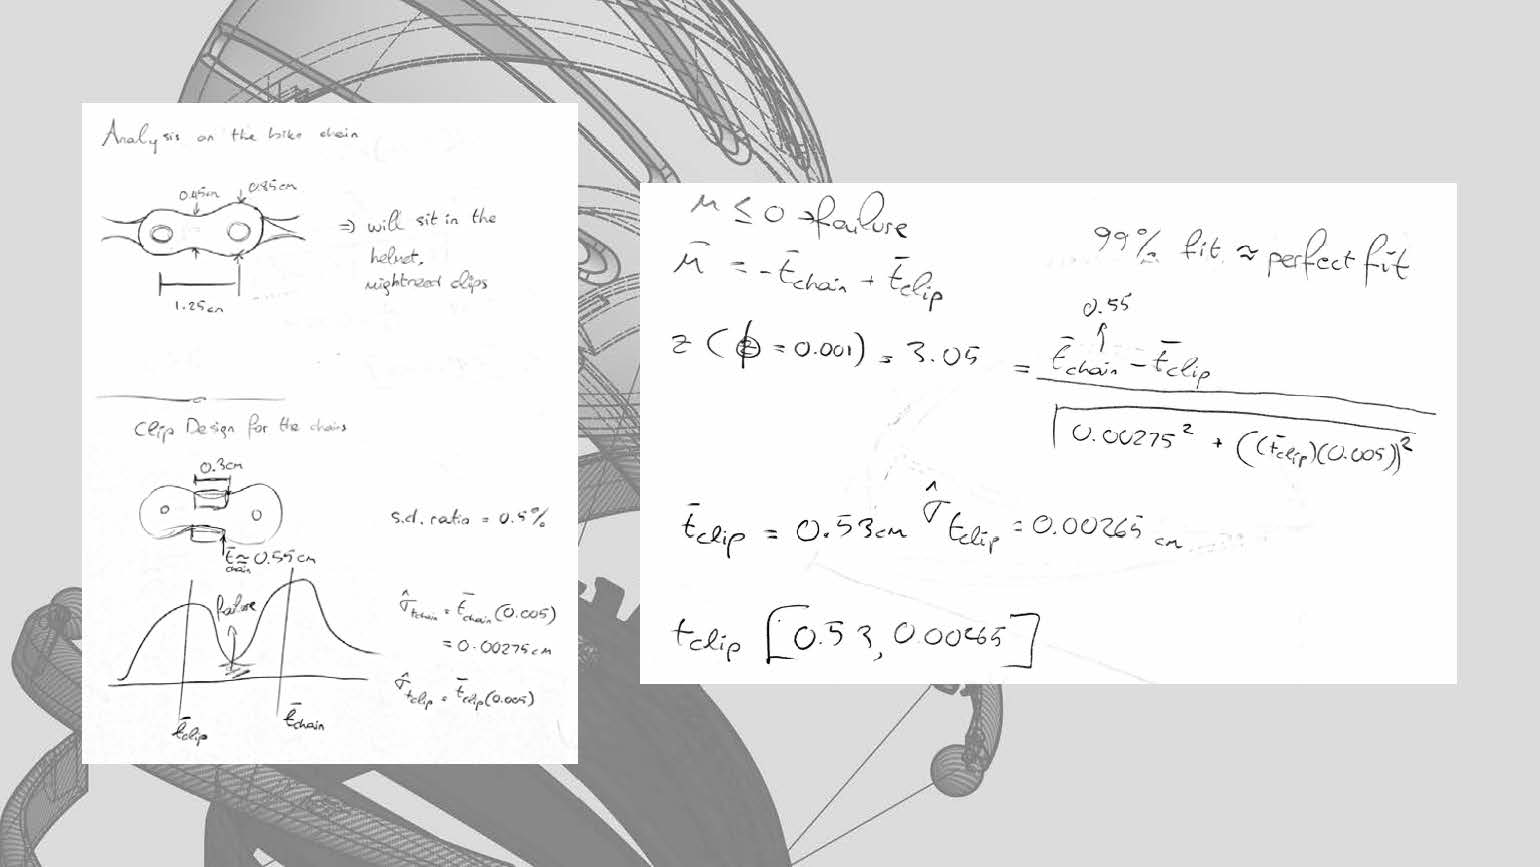 Analysis on the bike chain
0.45cm
0.85cm
⇒ will sit in the
helmet,
1.25cm
Clip Design for the chains
0.3cm
s.d. ratio = 0.5%
t̄chain ≈ 0.55cm
failure
σ̂tchain = t̄chain (0.005)
= 0.00275cm
σ̂tclip = t̄clip (0.005)
t̄clip
t̄chain
μ ≤ 0 → failure
μ̄ = -t̄chain + t̄clip
99% fit ≈ perfect fit
0.55
z ( = 0.001) = 3.05 = t̄chain - t̄clip
√0.00275² + ((t̄clip)(0.005))²
t̄clip = 0.53cm σ̂tclip = 0.00265 cm
tclip [0.53, 0.00265]